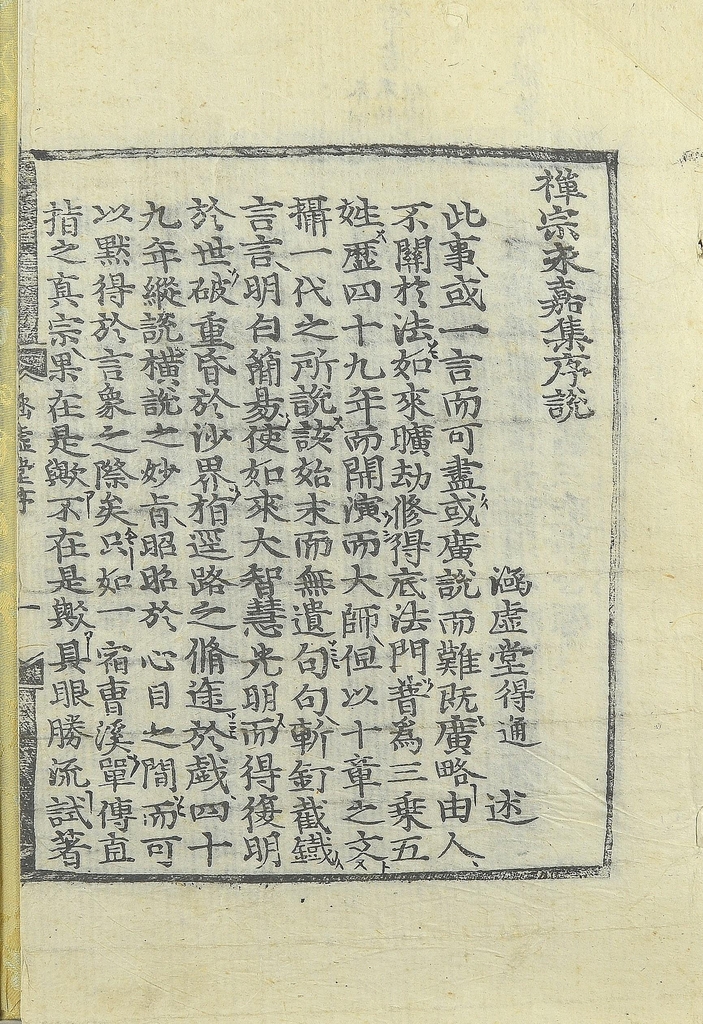 禪宗永嘉集序說
涵虛堂得通　述
此事或一言而可盡或廣說而難旣廣略由人
不關於法如來曠劫修得底法門普爲三乘五
姓歷四十九年而開演而大師但以十章之文
攝一代之所說該始末而無遺句句斬釘截鐵
言言明白簡易使如來大智慧光明而得復明
於世破重昏於沙界指逕路之脩途於戱四十
九年縱說橫說之妙旨昭昭於心目之間而可
以默得於言象之際矣只如一宿曹溪單傳直
指之真宗果在是歟不在是歟具眼勝流試著
涵虛堂序
一